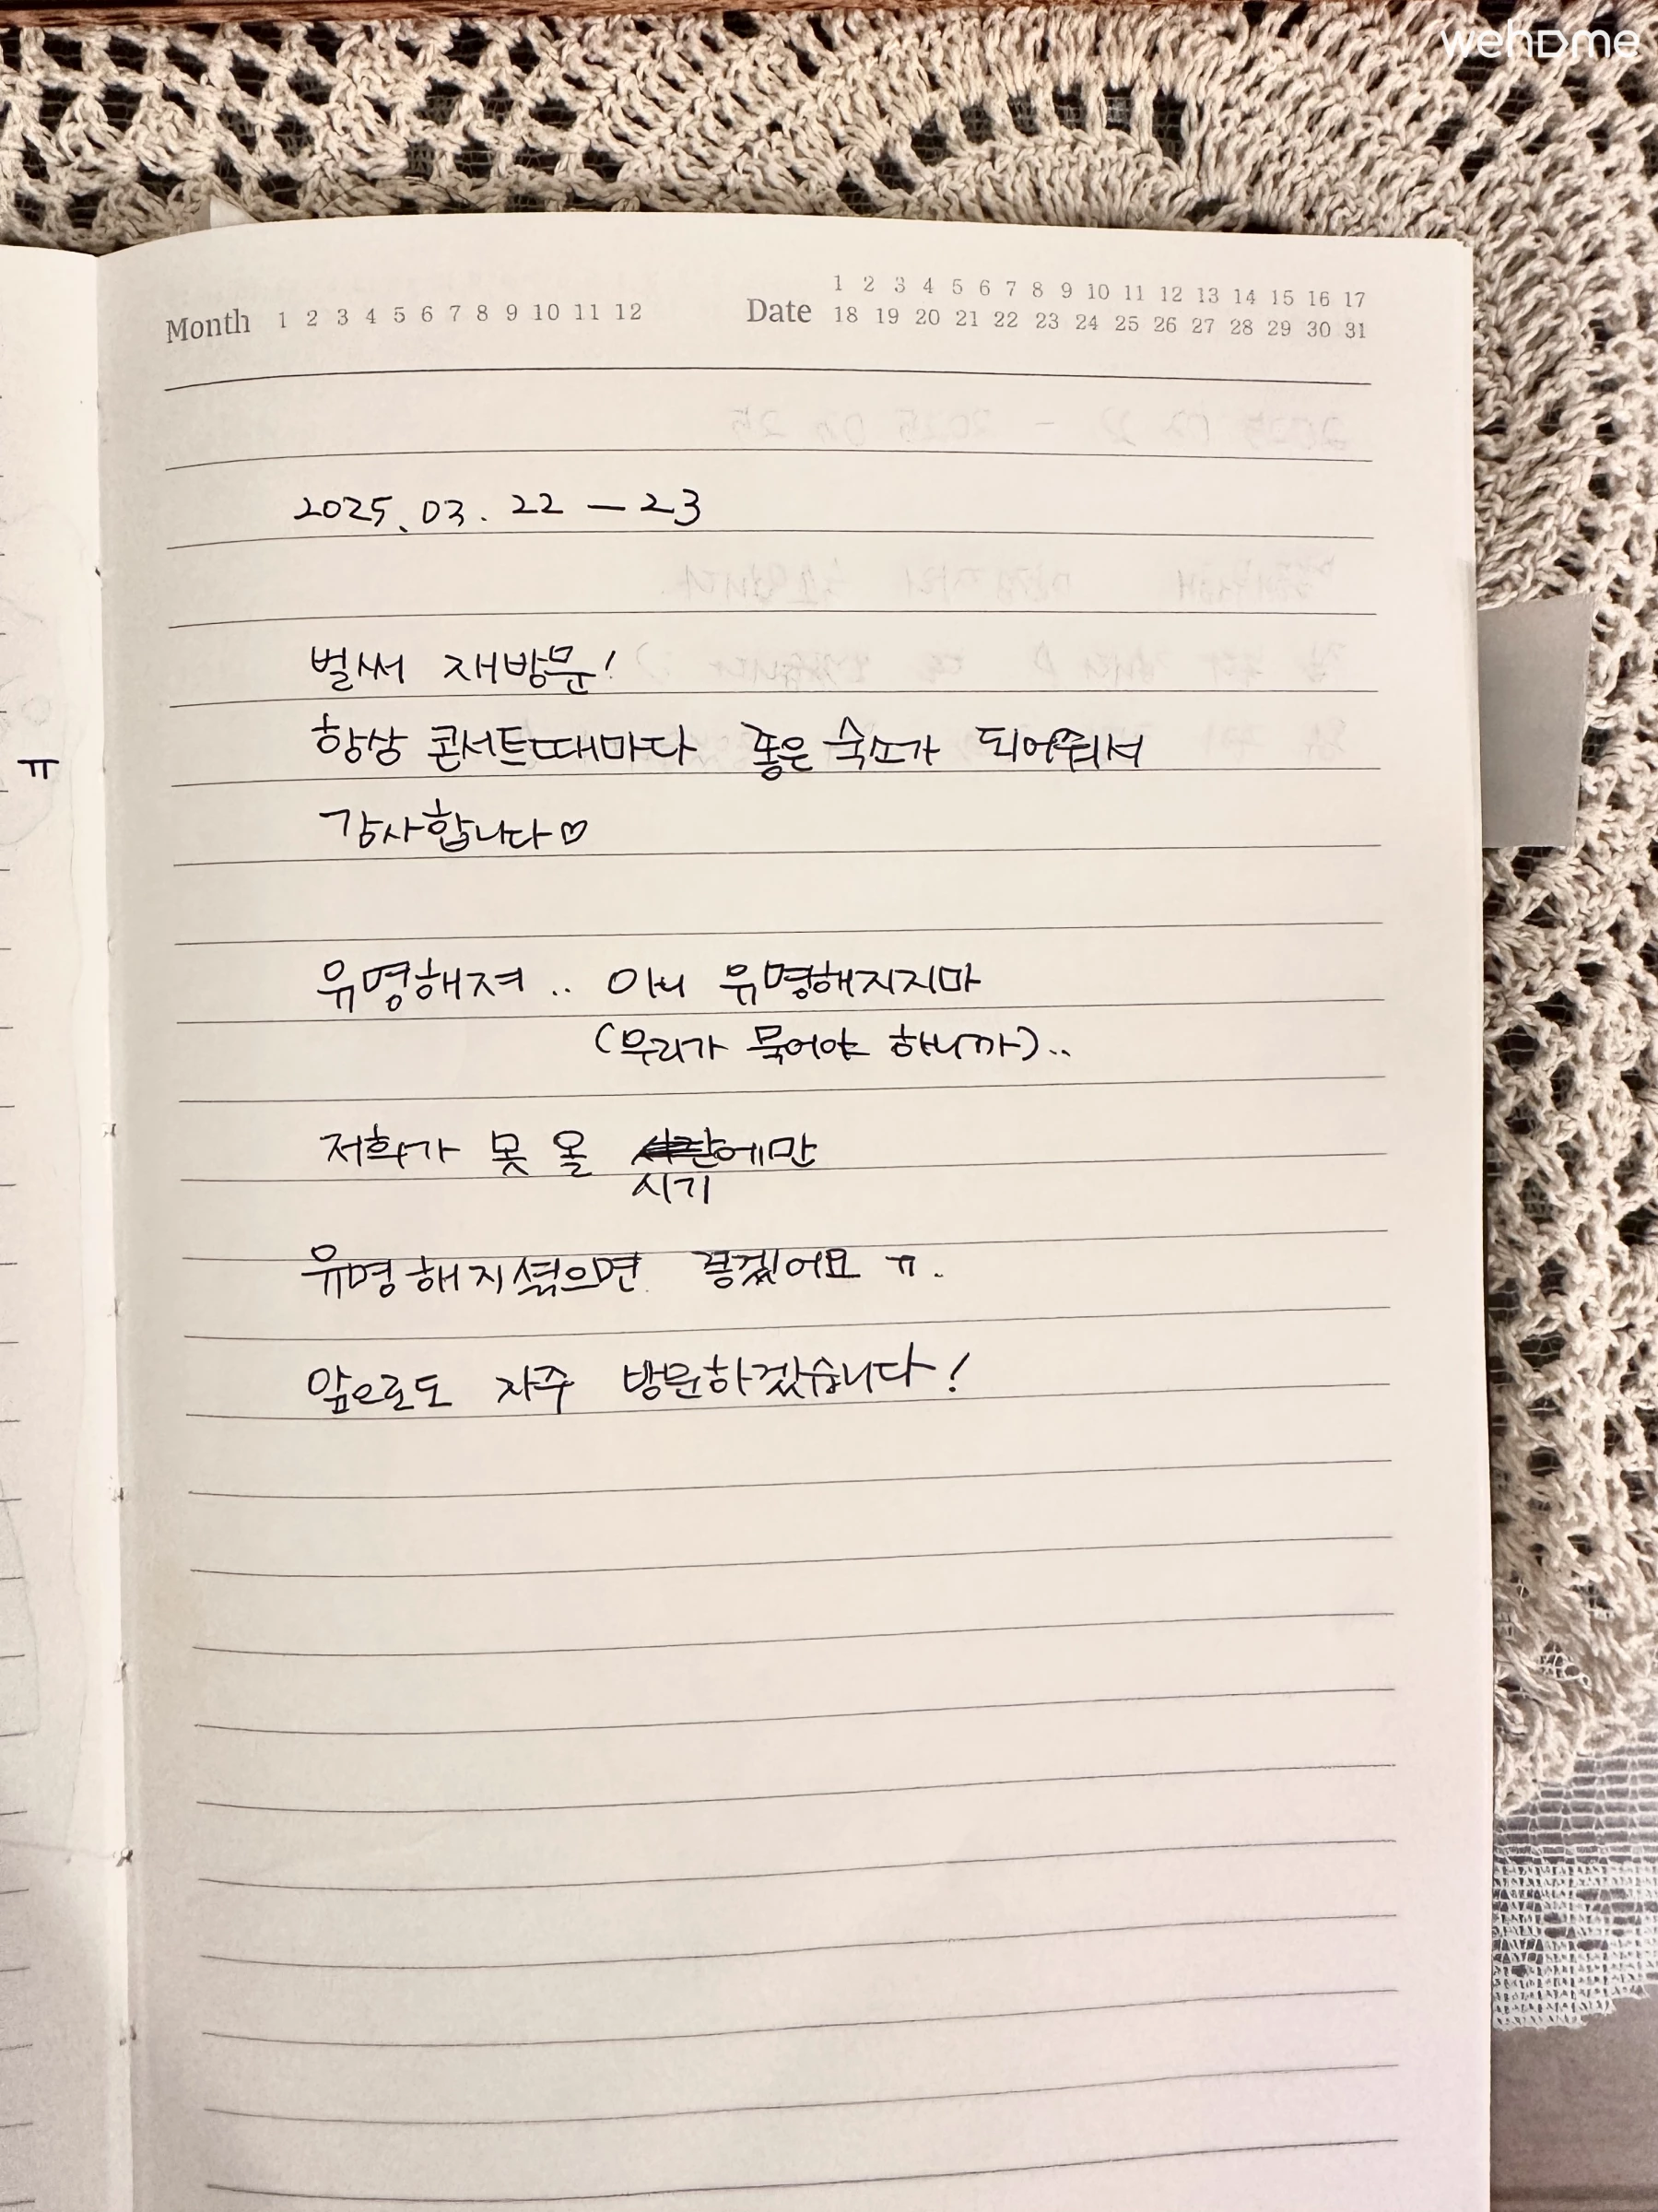 wehome
Month 1 2 3 4 5 6 7 8 9 10 11 12
Date 1 2 3 4 5 6 7 8 9 10 11 12 13 14 15 16 17
18 19 20 21 22 23 24 25 26 27 28 29 30 31
2025. 03. 22 - 23
벌써 재방문!
항상 콘서트때마다 좋은 숙소가 되어줘서
감사합니다♡
유명해져.. 아니 유명해지지마
(우리가 묵어야 하니까)..
저희가 못 올 에만
시기
유명해지셨으면 좋겠어요 ㅠ.
앞으로도 자주 방문하겠습니다!
ㅠ